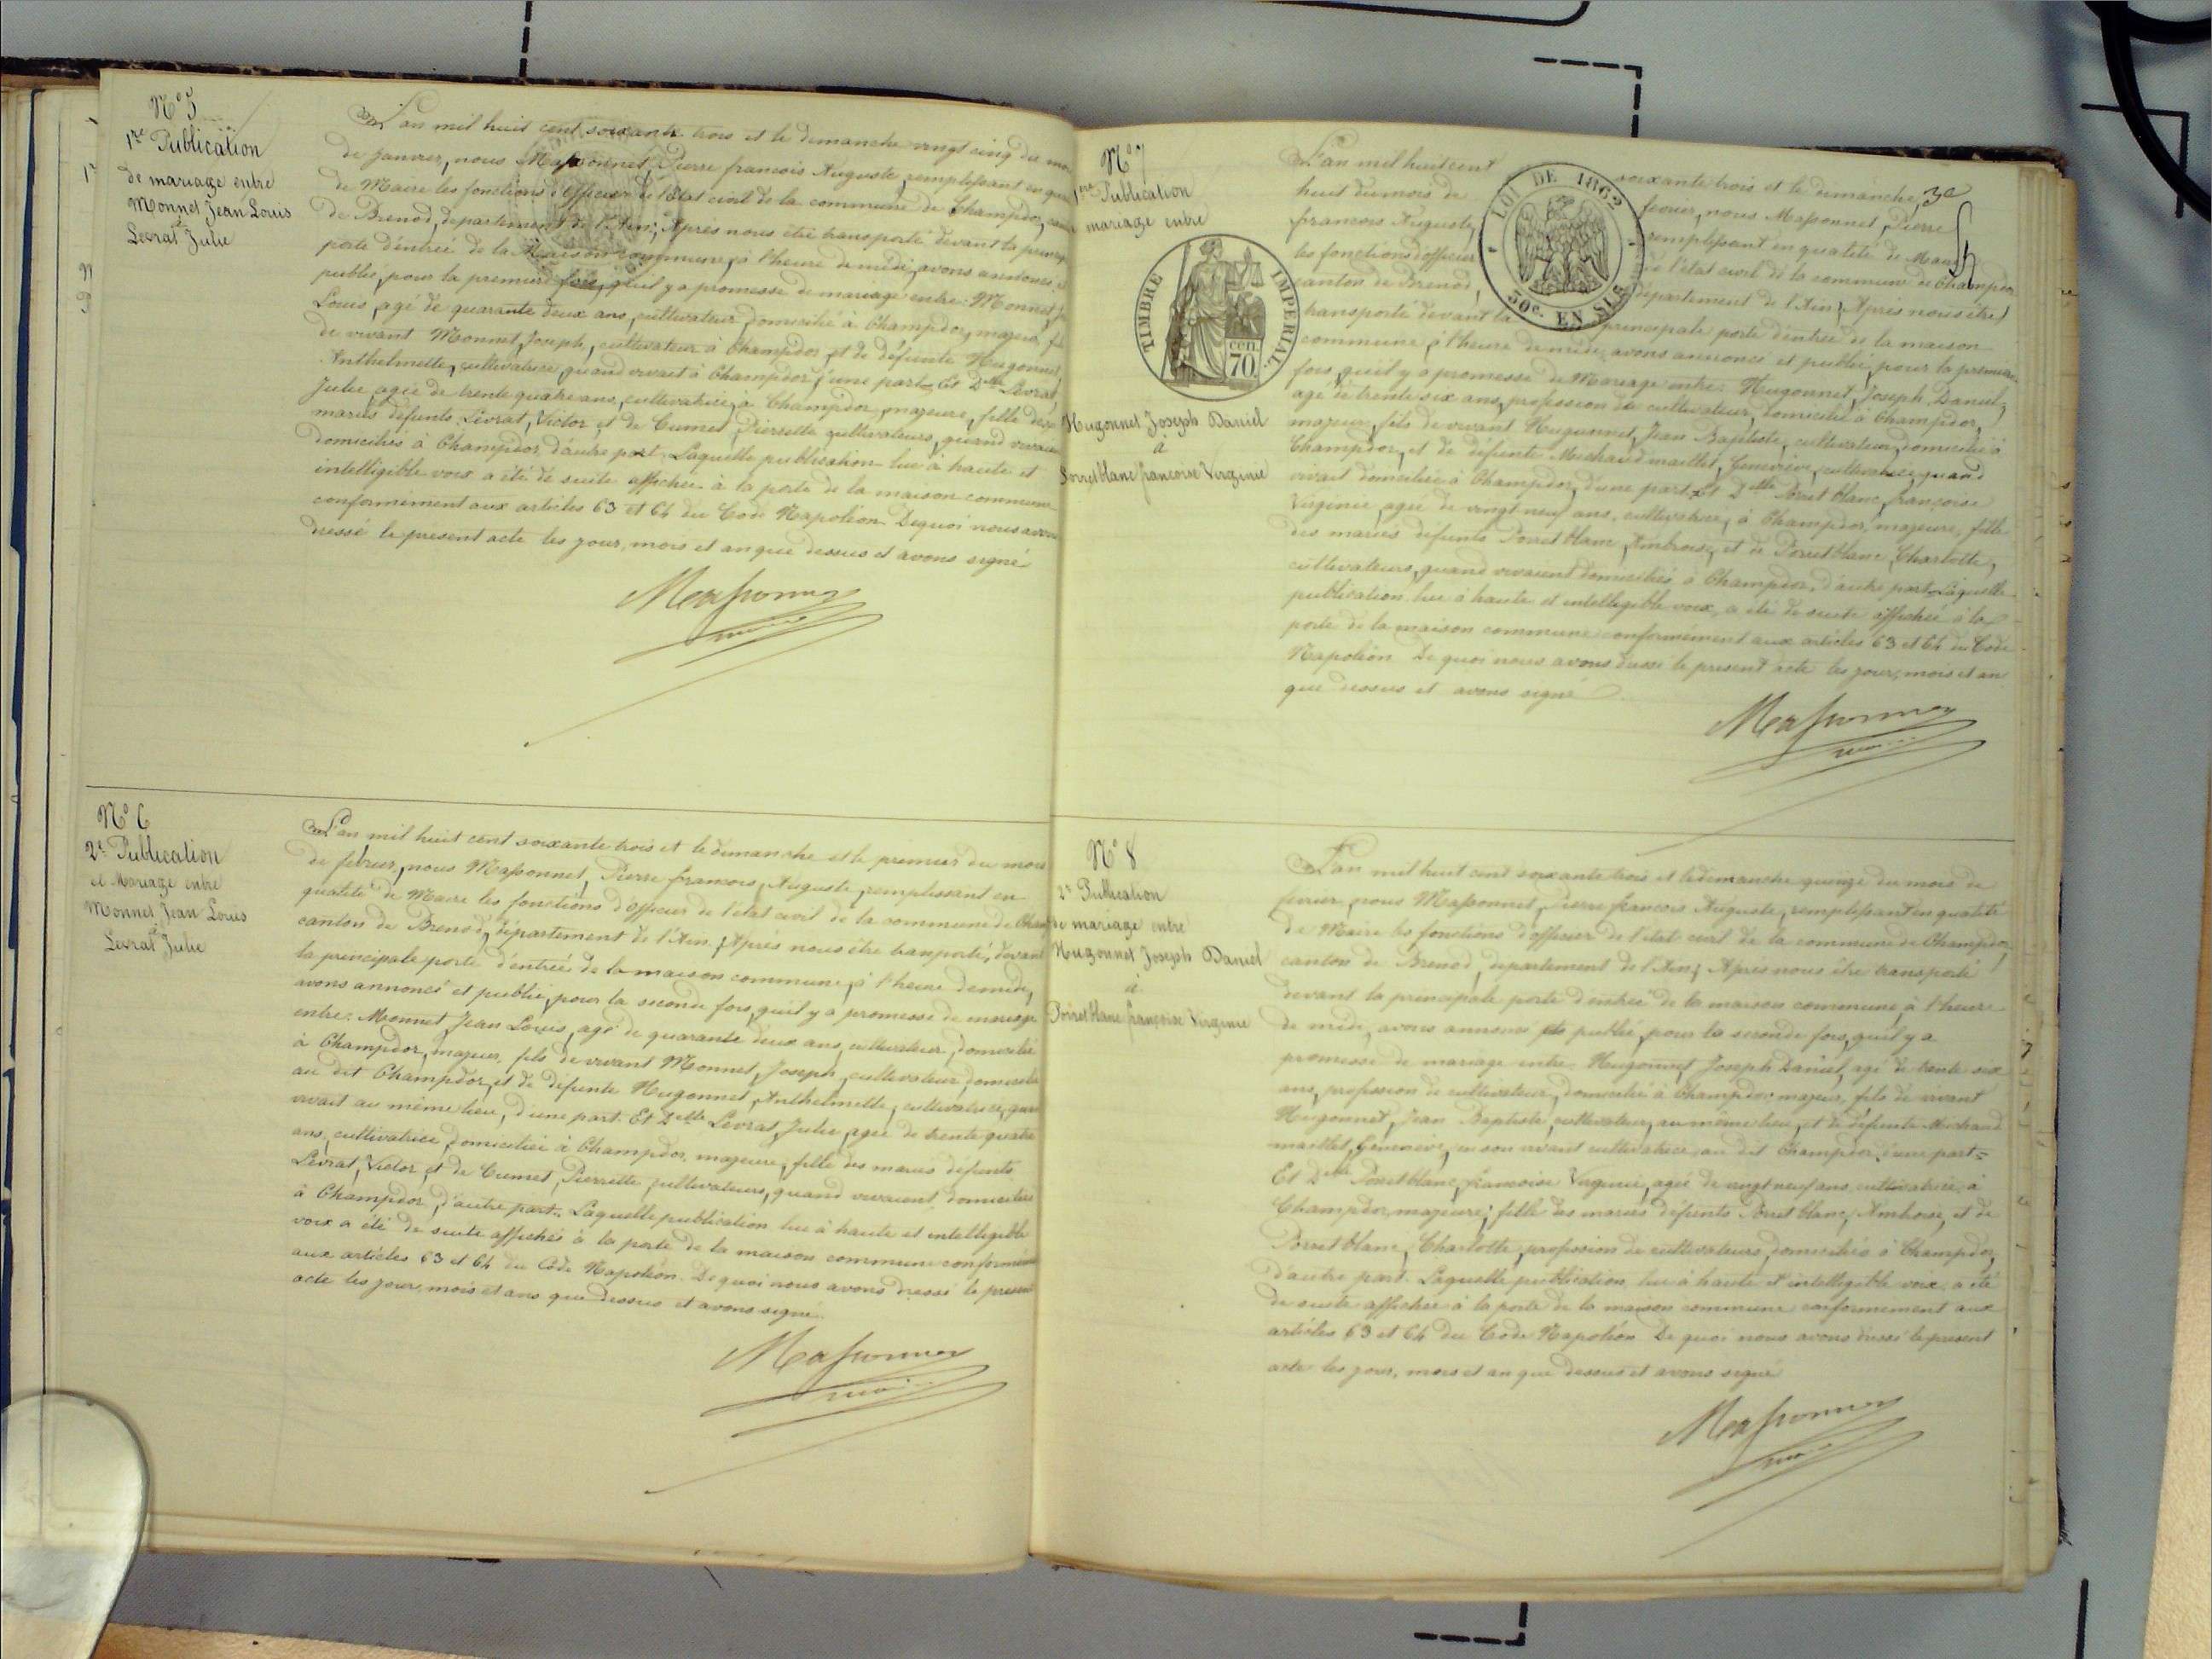 N° 5
1re Publication
de mariage entre
Monnet Jean Louis
et
Levrat Julie
L'an mil huit cent soixante trois et le dimanche vingt cinq du mois
de janvier, nous Massonnet, Pierre francois Auguste, remplissant en
de Maire les fonctions d'officier de l'Etat civil de la commune de Champdor,
de Brenod, département de l'Ain; Après nous être transporté devant la
porte d'entrée de la Maison commune, à l'heure de midi, avons annoncé
publié, pour la premiere fois, qu'il y a promesse de mariage entre: Monnet
Louis, agé de quarante deux ans, cultivateur, domicilié à Champdor, majeur,
de vivant Monnet, Joseph, cultivateur à Champdor, et de défunte Hugonnet
Anthelmette, cultivatrice, quand vivait à Champdor, d'une part. Et Delle Levrat,
Julie, agée de trente quatre ans, cultivatrice, à Champdor, majeure, fille des
mariés défunts Levrat, Victor et de Cumet, Pierrette cultivateurs, quand vivaient
domiciliés à Champdor, d'autre part, Laquelle publication lue à haute et
intelligible voix a été de suite affichée à la porte de la maison commune
conformément aux articles 63 et 64 du Code Napoléon. De quoi nous avons
dressé le présent acte les jour, mois et an que dessus et avons signé
Massonnet
N° 6
2e Publication
et Mariage entre
Monnet Jean Louis
et
Levrat Julie
L'an mil huit cent soixante trois et le dimanche et le premier du mois
de fevrier, nous Massonnet, Pierre francois, Auguste, remplissant en
qualité de Maire les fonctions d'officier de l'état civil de la commune de
canton de Brenod, département de l'Ain; Après nous être transporté, devant
la principale porte d'entrée de la maison commune, à l'heure de midi,
avons annoncé et publié, pour la seconde fois, qu'il y a promesse de mariage
entre: Monnet, Jean Louis, agé de quarante deux ans, cultivateur, domicilié
à Champdor, majeur, fils de vivant Monnet, Joseph, cultivateur, domicilié
au dit Champdor, et de défunte Hugonnet, Anthelmette, cultivatrice, quand
vivait au même lieu, d'une part. Et Delle Levrat, Julie, agée de trente quatre
ans, cultivatrice, domiciliée à Champdor, majeure, fille des mariés défunts
Levrat, Victor et de Cumet, Pierrette, cultivateurs, quand vivaient domiciliés
à Champdor, d'autre part. Laquelle publication lue à haute et intelligible
voix a été de suite affichée à la porte de la maison commune conformément
aux articles 63 et 64 du Code Napoléon. De quoi nous avons dressé le présent
acte les jour, mois et ans que dessus et avons signé.
Massonnet
N° 7
1re Publication
mariage entre
TIMBRE IMPERIAL
cen. 70.
Hugonnet Joseph Daniel
à
Poncetblanc francoise Virginie
LOI DE 1862
50c. EN SUS
L'an mil huit cent soixante trois et le dimanche
huit du mois de fevrier, nous Massonnet, Pierre
francois Auguste, remplissant en qualité de Maire
les fonctions d'officier de l'état civil de la commune de Champdor
canton de Brenod, département de l'Ain; Après nous être
transporté devant la principale porte d'entrée de la maison
commune, à l'heure de midi, avons annoncé et publié, pour la première
fois, qu'il y a promesse de Mariage entre: Hugonnet, Joseph Daniel,
agé de trente six ans, profession de cultivateur, domicilié à Champdor,
majeur, fils de vivant Hugonnet, Jean Baptiste, cultivateur, domicilié à
Champdor, et de défunte Michaud maillet, Geneviève, cultivatrice, quand
vivait domiciliée à Champdor, d'une part. Et Delle Poncet blanc, françoise
Virginie, agée de vingt neuf ans, cultivatrice, à Champdor, majeure, fille
des mariés défunts Poncet blanc, Ambroise, et de Poncet blanc, Charlotte,
cultivateurs, quand vivaient domiciliés à Champdor, d'autre part. Laquelle
publication lue à haute et intelligible voix, a été de suite affichée à la
porte de la maison commune conformément aux articles 63 et 64 du Code
Napoléon. De quoi nous avons dressé le present acte les jour, mois et an
que dessus et avons signé.
Massonnet
N° 8
2e Publication
de mariage entre
Hugonnet Joseph Daniel
à
Poncetblanc françoise Virginie
L'an mil huit cent soixante trois et le dimanche quinze du mois de
fevrier, nous Massonnet, Pierre francois Auguste, remplissant en qualité
de Maire les fonctions d'officier de l'état civil de la commune de Champdor,
canton de Brenod, département de l'Ain; Après nous être transporté
devant la principale porte d'entrée de la maison commune, à l'heure
de midi, avons annoncé et publié, pour la seconde fois, qu'il y a
promesse de mariage entre: Hugonnet, Joseph Daniel, agé de trente six
ans, profession de cultivateur, domicilié à Champdor majeur, fils de vivant
Hugonnet, Jean Baptiste, cultivateur, au même lieu, et de défunte Michaud
maillet, Geneviève, en son vivant cultivatrice au dit Champdor, d'une part=
Et Delle Poncet blanc, francoise Virginie, agée de vingt neuf ans, cultivatrice, à
Champdor, majeure; fille des mariés défunts Poncet blanc, Ambroise, et de
Poncet blanc, Charlotte, profession de cultivateurs, domiciliés à Champdor,
d'autre part. Laquelle publication, lue à haute et intelligible voix, a été
de suite affichée à la porte de la maison commune conformément aux
articles 63 et 64 du Code Napoléon. De quoi nous avons dressé le present
acte les jour, mois et an que dessus et avons signé
Massonnet